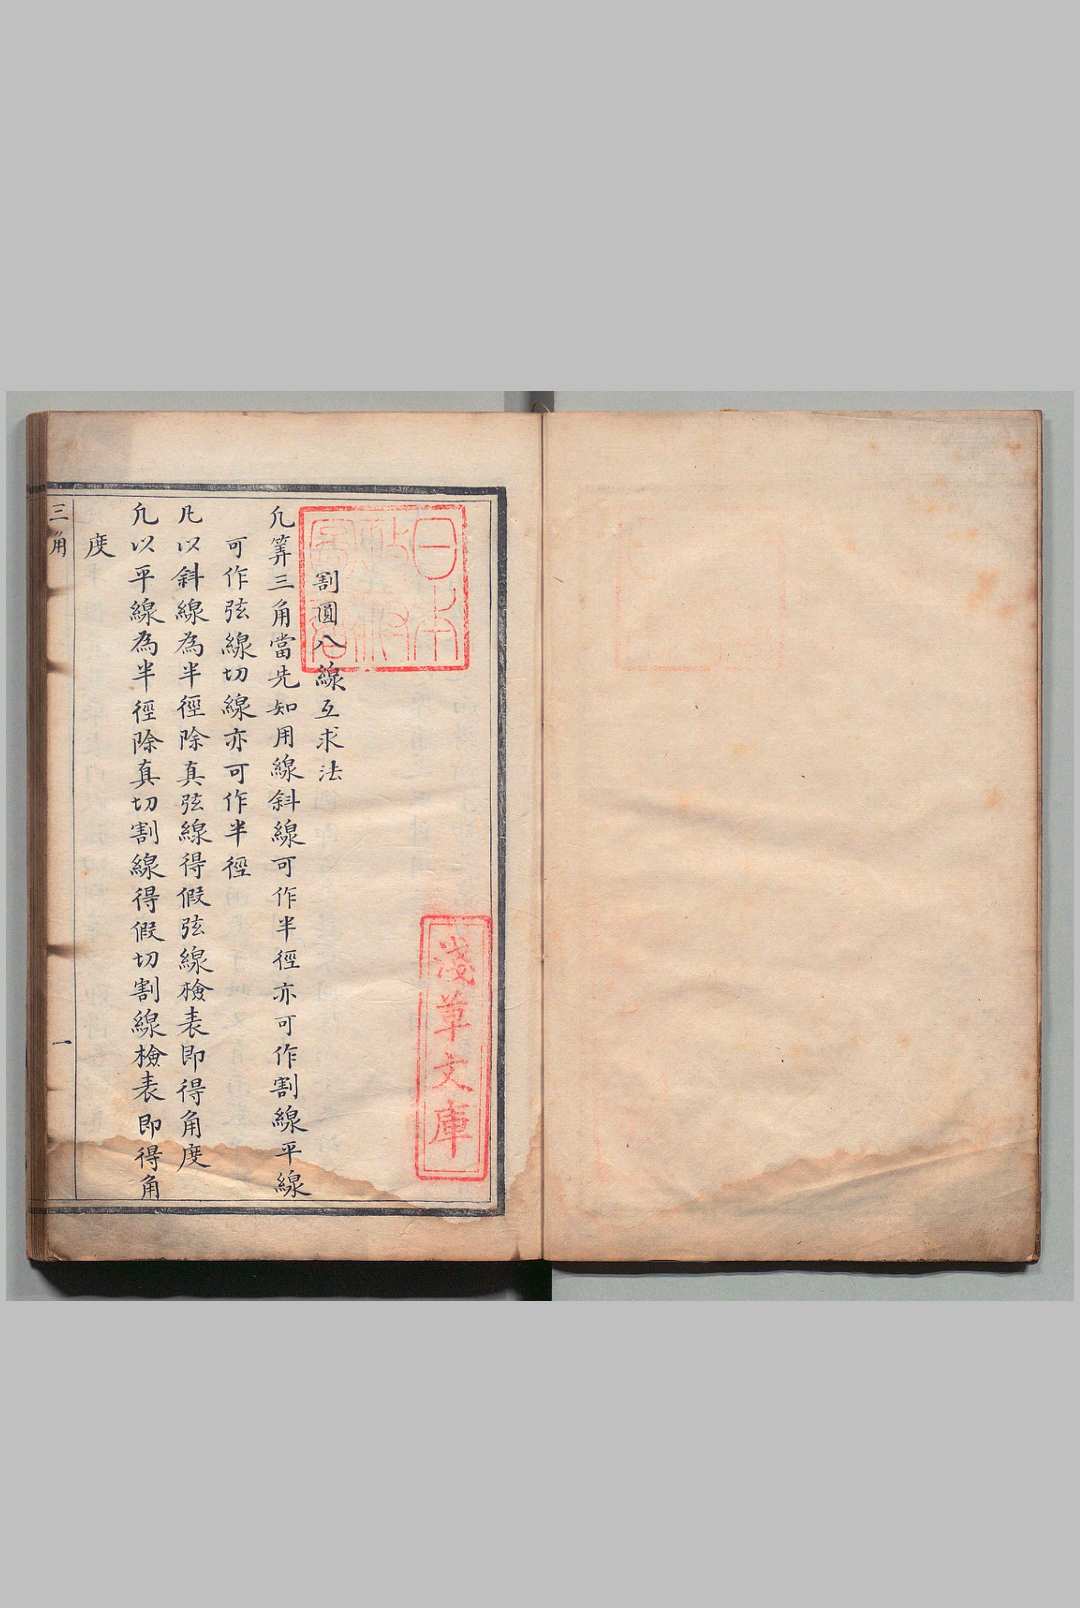 割圓八線互求法
凢筭三角當先知用線斜線可作半徑亦可作割線平線
可作弦線切線亦可作半徑
凡以斜線為半徑除真弦線得假弦線檢表即得角度
凢以平線為半徑除真切割線得假切割線檢表即得角
度
三角
一
日本
淺草文庫